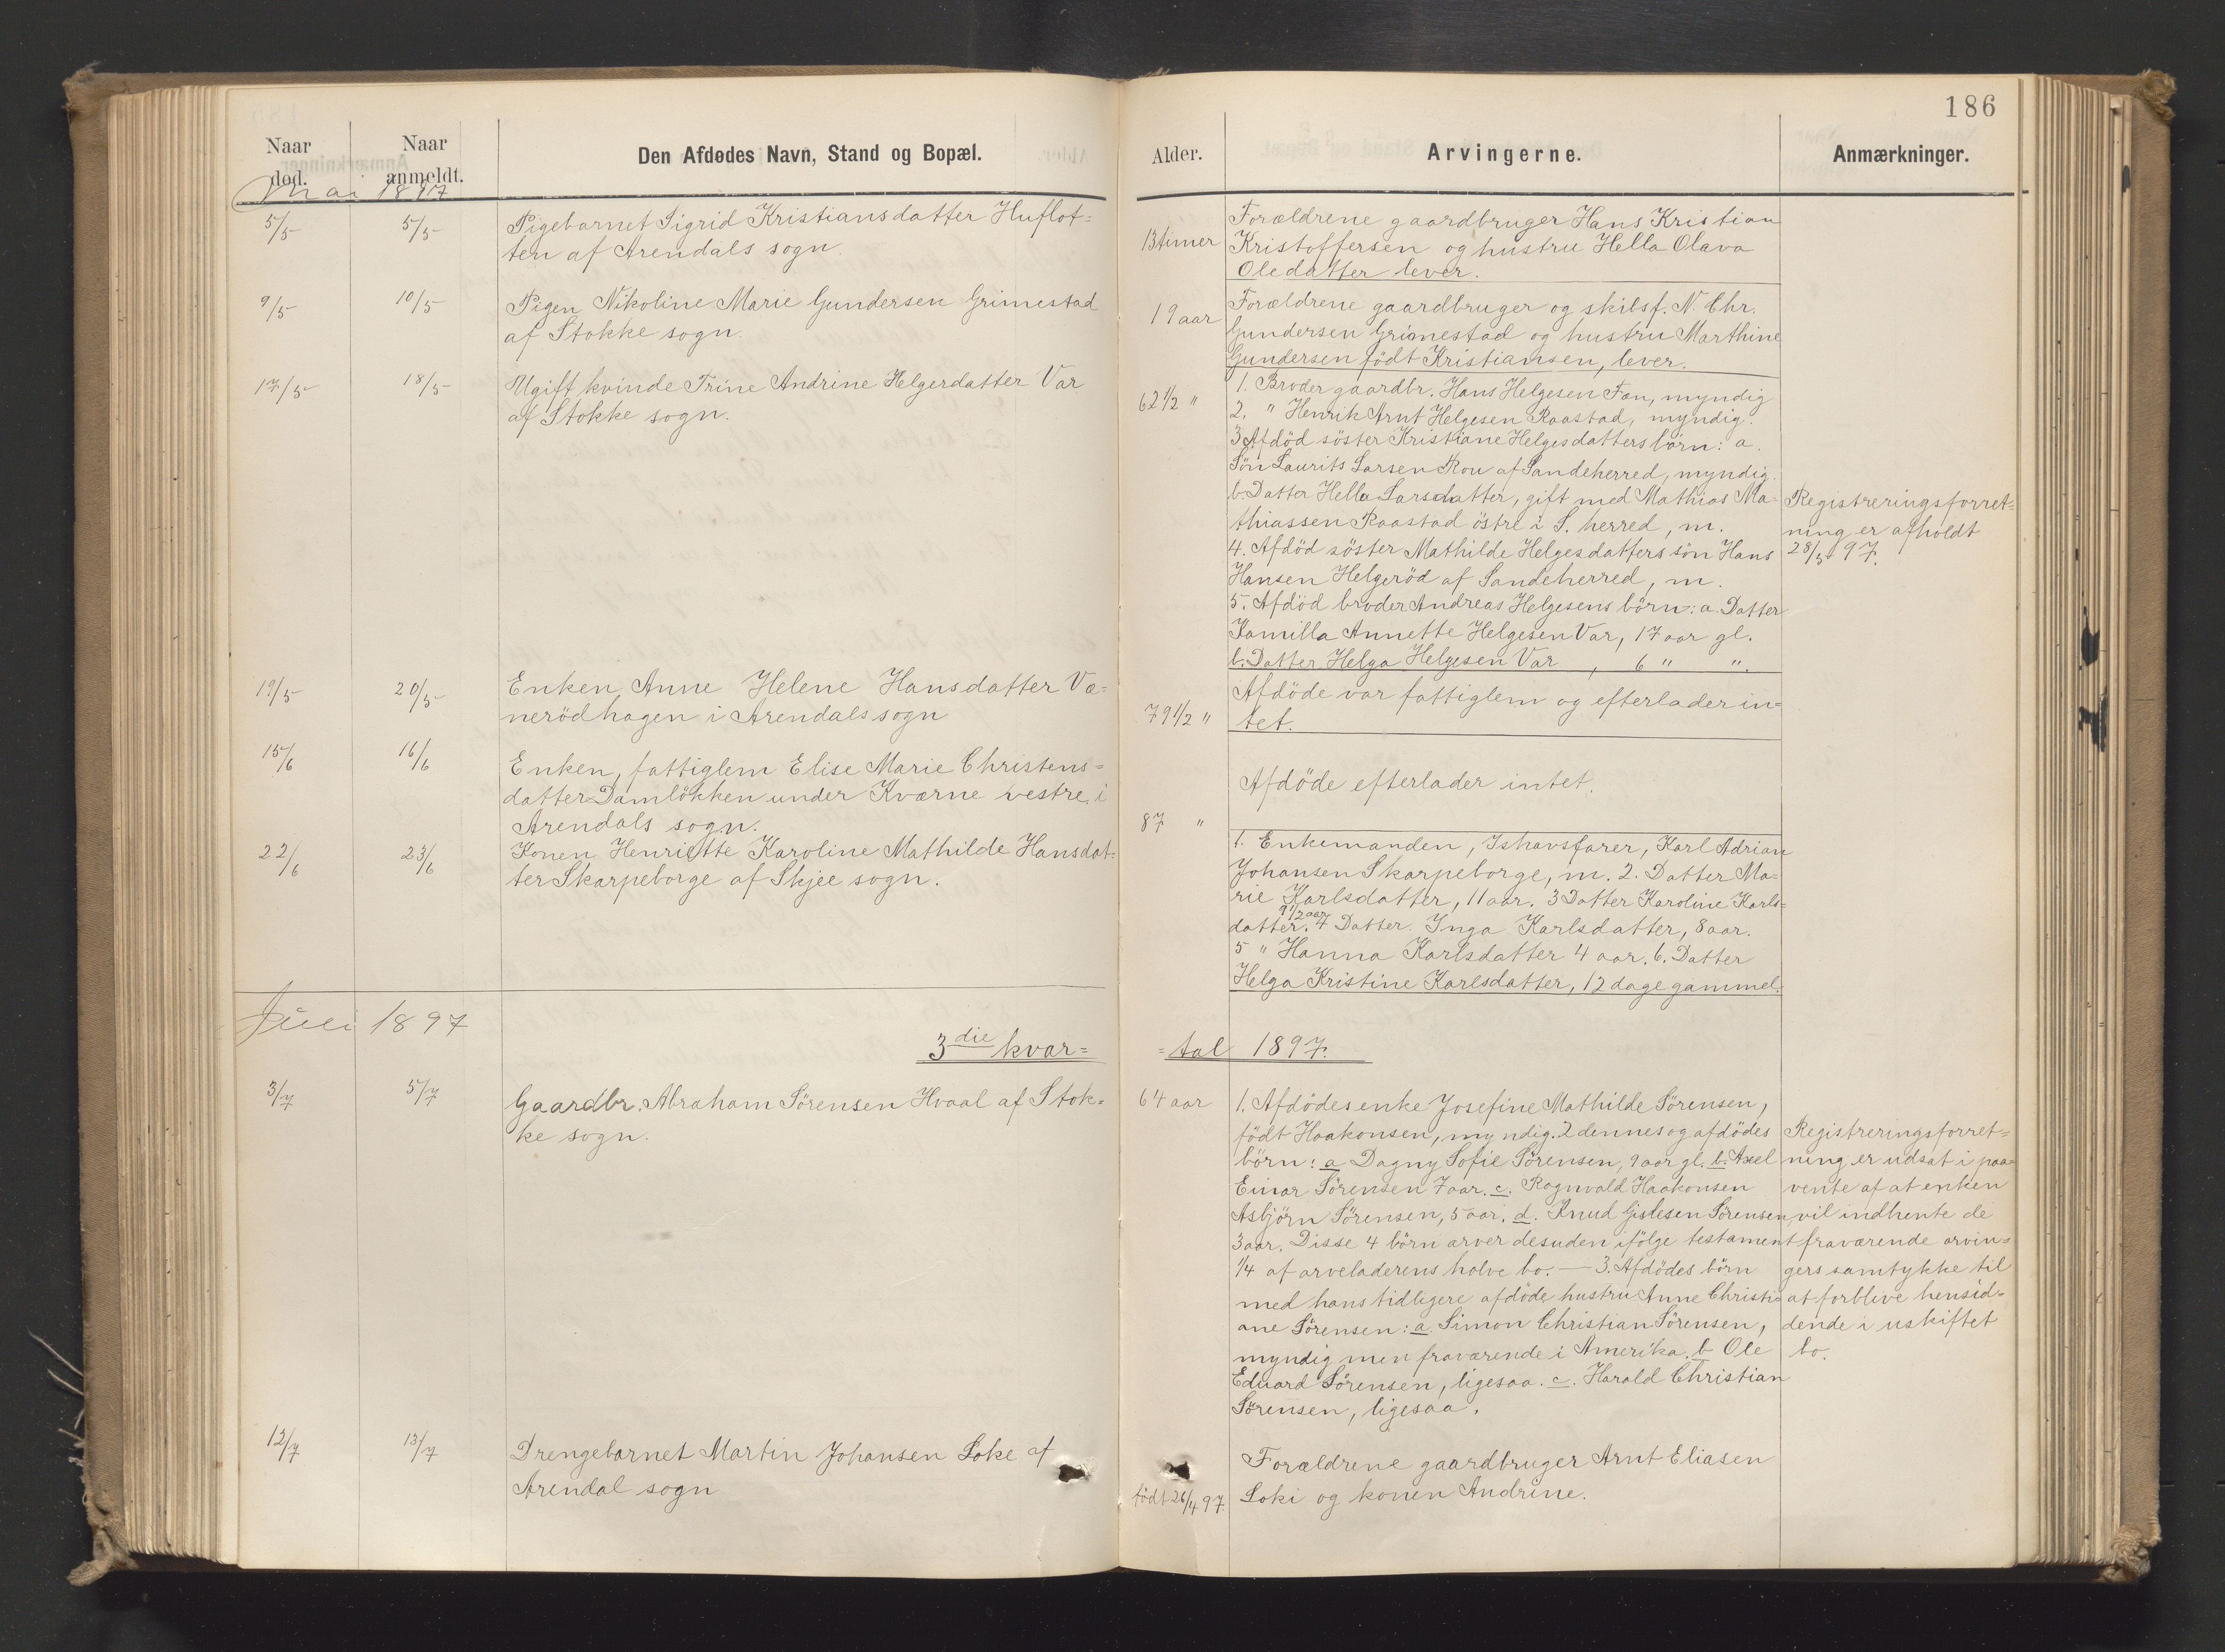 186
Naar død.
Naar anmeldt.
Den Afdødes Navn, Stand og Bopæl.
Alder.
Arvingerne.
Anmærkninger.
Mai 1897
5/5
5/5
Pigebarnet Sigrid Kristiansdatter Huflot=
ten af Arendals sogn.
13 timer
Forældrene gaardbruger Hans Kristian
Kristoffersen og hustru Hella Olava
Oledatter lever.
9/5
10/5
Pigen Nikoline Marie Gundersen Grimestad
af Stokke sogn.
19 aar
Forældrene gaardbruger og skibsf. N. Chr.
Gundersen Grimestad og hustru Marthine
Gundersen födt Kristiansen, lever.
17/5
18/5
Ugift kvinde Trine Andrine Helgerdatter Var
af Stokke sogn.
62 1/2 "
1. Broder gaardbr. Hans Helgesen Fan, myndig
2. " Henrik Arnt Helgesen Raastad, myndig.
3 Afdöd söster Kristiane Helgesdatters börn: a.
Sön Laurits Larsen Rou af Sandeherred, myndig.
b. Datter Hella Larsdatter, gift med Mathias Ma=
thiassen Raastad östre i S. herred, m.
4. Afdöd söster Mathilde Helgesdatters sön Hans
Hansen Helgeröd af Sandeherred, m.
5. Afdöd broder Andreas Helgesens börn: a. Datter
Kamilla Annette Helgesen Var, 17 aar gl.
b. Datter Helga Helgesen Var, 6 " ".
Registreringsforret=
ning er afholdt
28/5 97.
19/5
20/5
Enken Anne Helene Hansdatter Væ=
nerödhagen i Arendals sogn
79 1/2 "
Afdöde var fattiglem og efterlader in=
tet.
15/6
16/6
Enken, fattiglem Elise Marie Christens=
datter Damlökken under Kværne vestre i
Arendals sogn.
87 "
Afdöde efterlader intet.
22/6
23/6
Konen Henriette Karoline Mathilde Hansdat=
ter Skarpeborge af Skjee sogn.
1. Enkemanden, Ishavsfarer, Karl Adrian
Johansen Skarpeborge, m. 2. Datter Ma=
rie Karlsdatter, 11 aar. 3 Datter Karoline Karls=
datter. 9 1/2 aar 4 Datter. Inga Karlsdatter, 8 aar.
5 " Hanna Karlsdatter 4 aar. 6. Datter
Helga Kristine Karlsdatter, 12 dage gammel.
Juli 1897
3die kvar=
=tal 1897.
3/7
5/7
Gaardbr. Abraham Sörensen Hvaal af Stok=
ke sogn.
64 aar
1. Afdödes enke Josefine Mathilde Sörensen,
födt Haakonsen, myndig. 2 dennes og afdödes
börn: a Dagny Sofie Sörensen, 9 aar gl. b. Axel
Einar Sörensen 7 aar. c. Ragnvald Haakonsen
Asbjörn Sörensen, 5 aar. d. Knud Gislesen Sörensen
3 aar. Disse 4 börn arver desuden ifölge testament
1/4 af arveladerens halve bo. — 3. Afdödes börn
med hans tidligere afdöde hustru Anne Christi=
ane Sörensen: a. Simon Christian Sörensen,
myndig men fraværende i Amerika. b Ole
Eduard Sörensen, ligesaa. c. Harald Christian
Sörensen, ligesaa.
Registreringsforret=
ning er udsat i paa=
vente af at enken
vil indhente de
fraværende arvin=
gers samtykke til
at forblive hensid=
dende i uskiftet
bo.
12/7
13/7
Drengebarnet Martin Johansen Loke af
Arendal sogn
födt 26/4 97.
Forældrene gaardbruger Arnt Eliasen
Loki og konen Andrine.